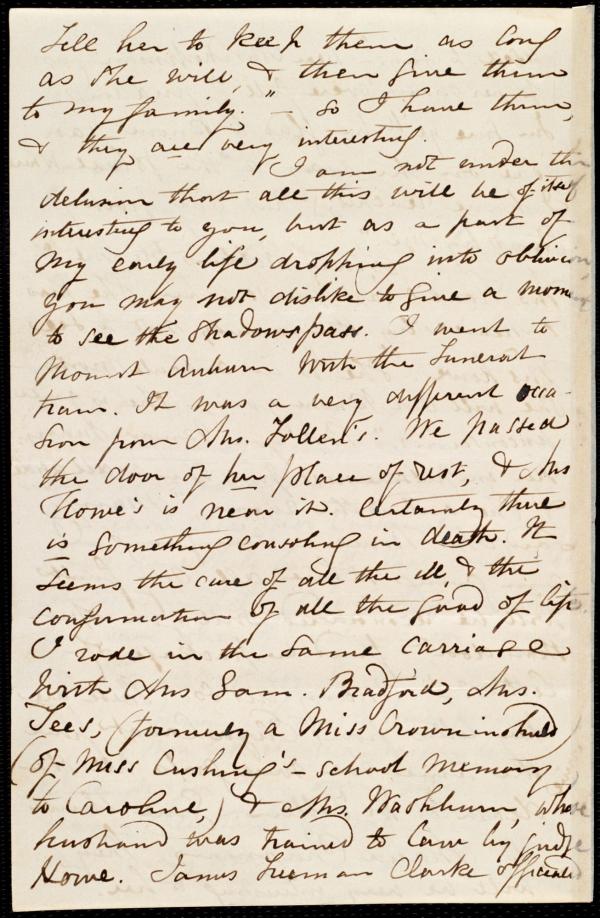 Tell her to keep them as long
as she will, & then give them
to my family." — So I have them,
& they are very interesting.
I am not under the
delusion that all this will be of itself
interesting to you, but as a part of
my early life dropping into oblivion
you may not dislike to give a moment
to see the shadows pass. I went to
Mount Auburn with the funeral
train. It was a very different occa-
sion from Mrs. Follen's. We passed
the door of her place of rest, & Mrs
Howe's is near it. Certainly there
is something consoling in death. It
seems the cure of all the ill, & the
confirmation of all the good of life.
I rode in the same carriage
with Mrs Sam. Bradford, Mrs.
Lees, (formerly a Miss Crowninshield)
(of Miss Cushing's - school memory
to Caroline,) & Mrs. Washburn, whose
husband was trained to law by Judge
Howe. James Freeman Clarke officiated